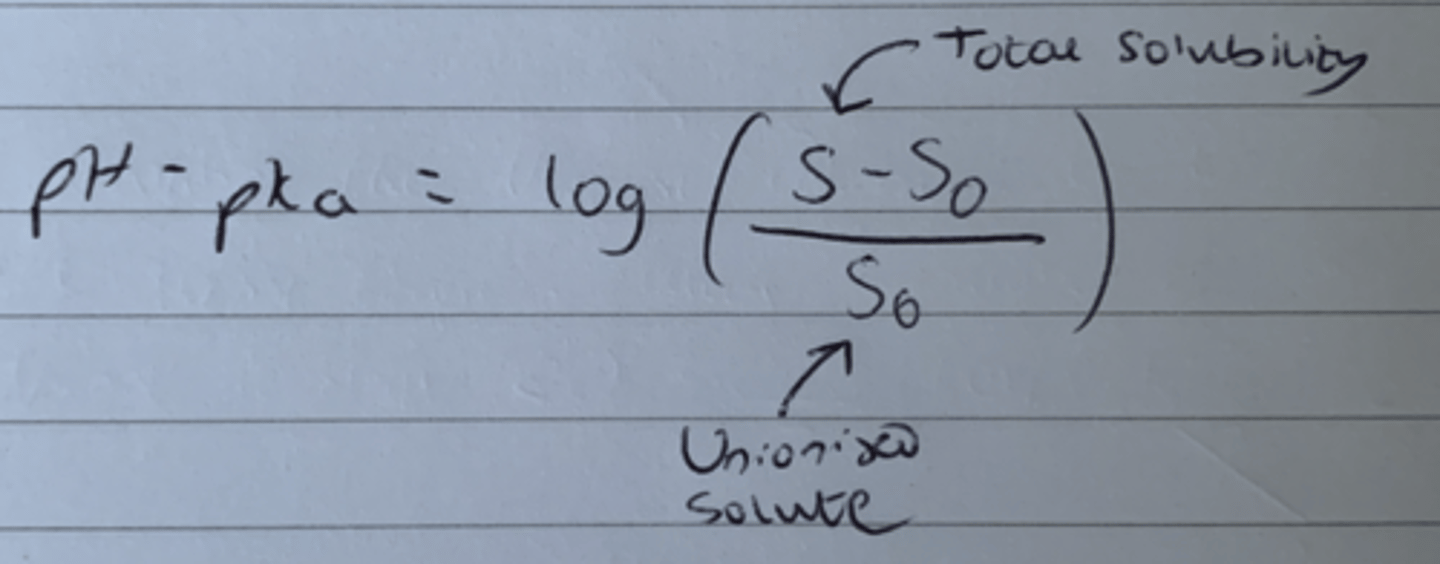 Total Solubility
pH - pka = log ( S - S0 / S0 )
Unionised
Solute